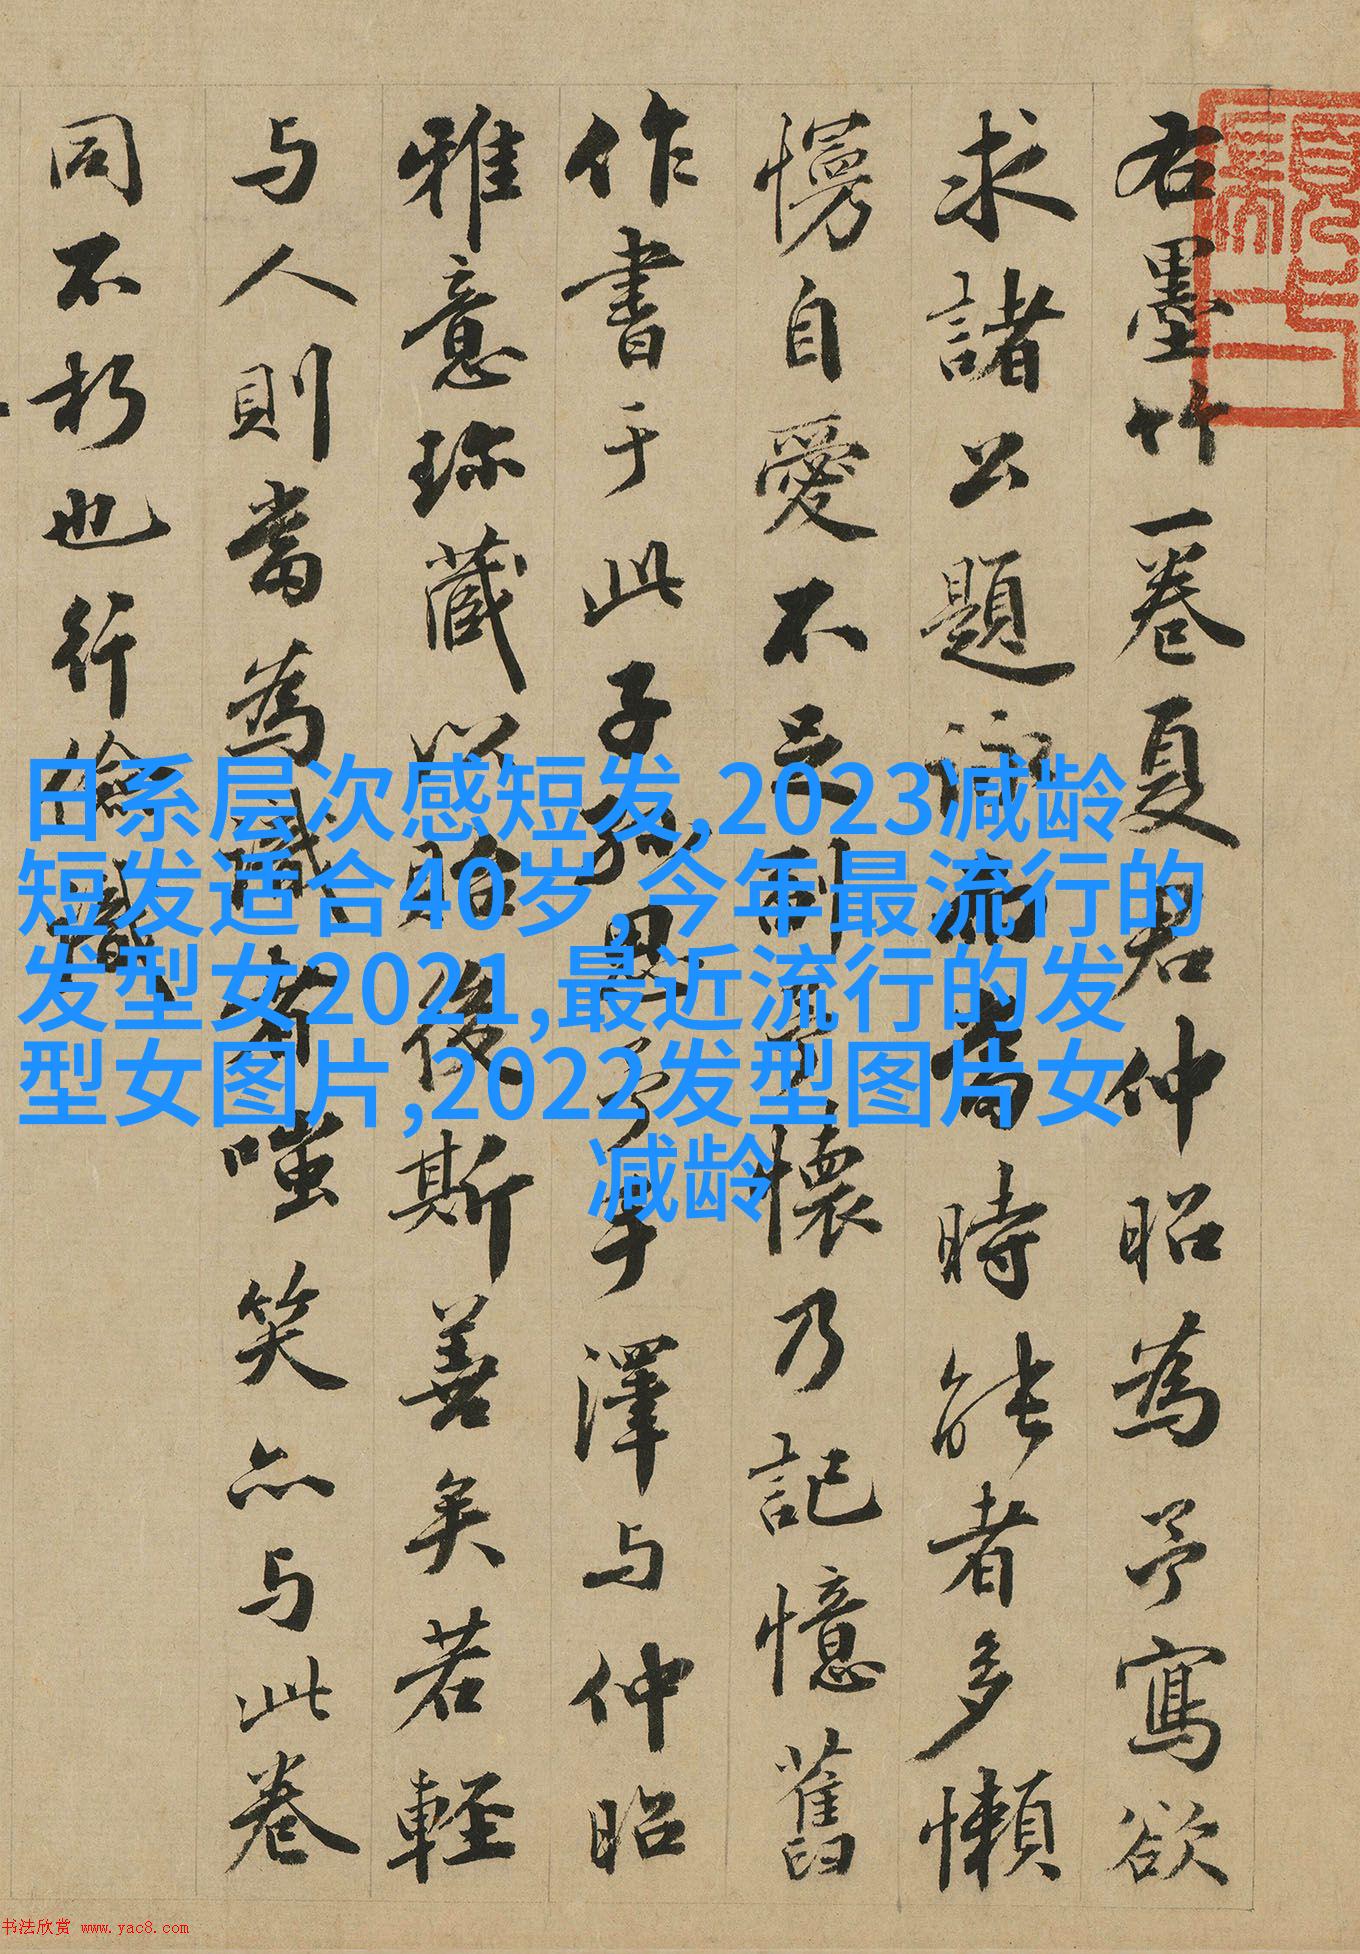 右墨竹一卷夏君仲昭為予寫欲
求諸公題詠而當時能者多懶
慢自愛不足副予懷乃記憶舊
作書于此子孫思予手澤与仲昭
雅意珎藏以貽後斯善矣若輕
与人則當為識者嗤笑亦与此卷
同不朽也行儉識
日系层次感短发,2023减龄
短发适合40岁,今年最流行的
发型女2021,最近流行的发
型女图片,2022发型图片女
减龄
书法欣赏 www.yac8.com